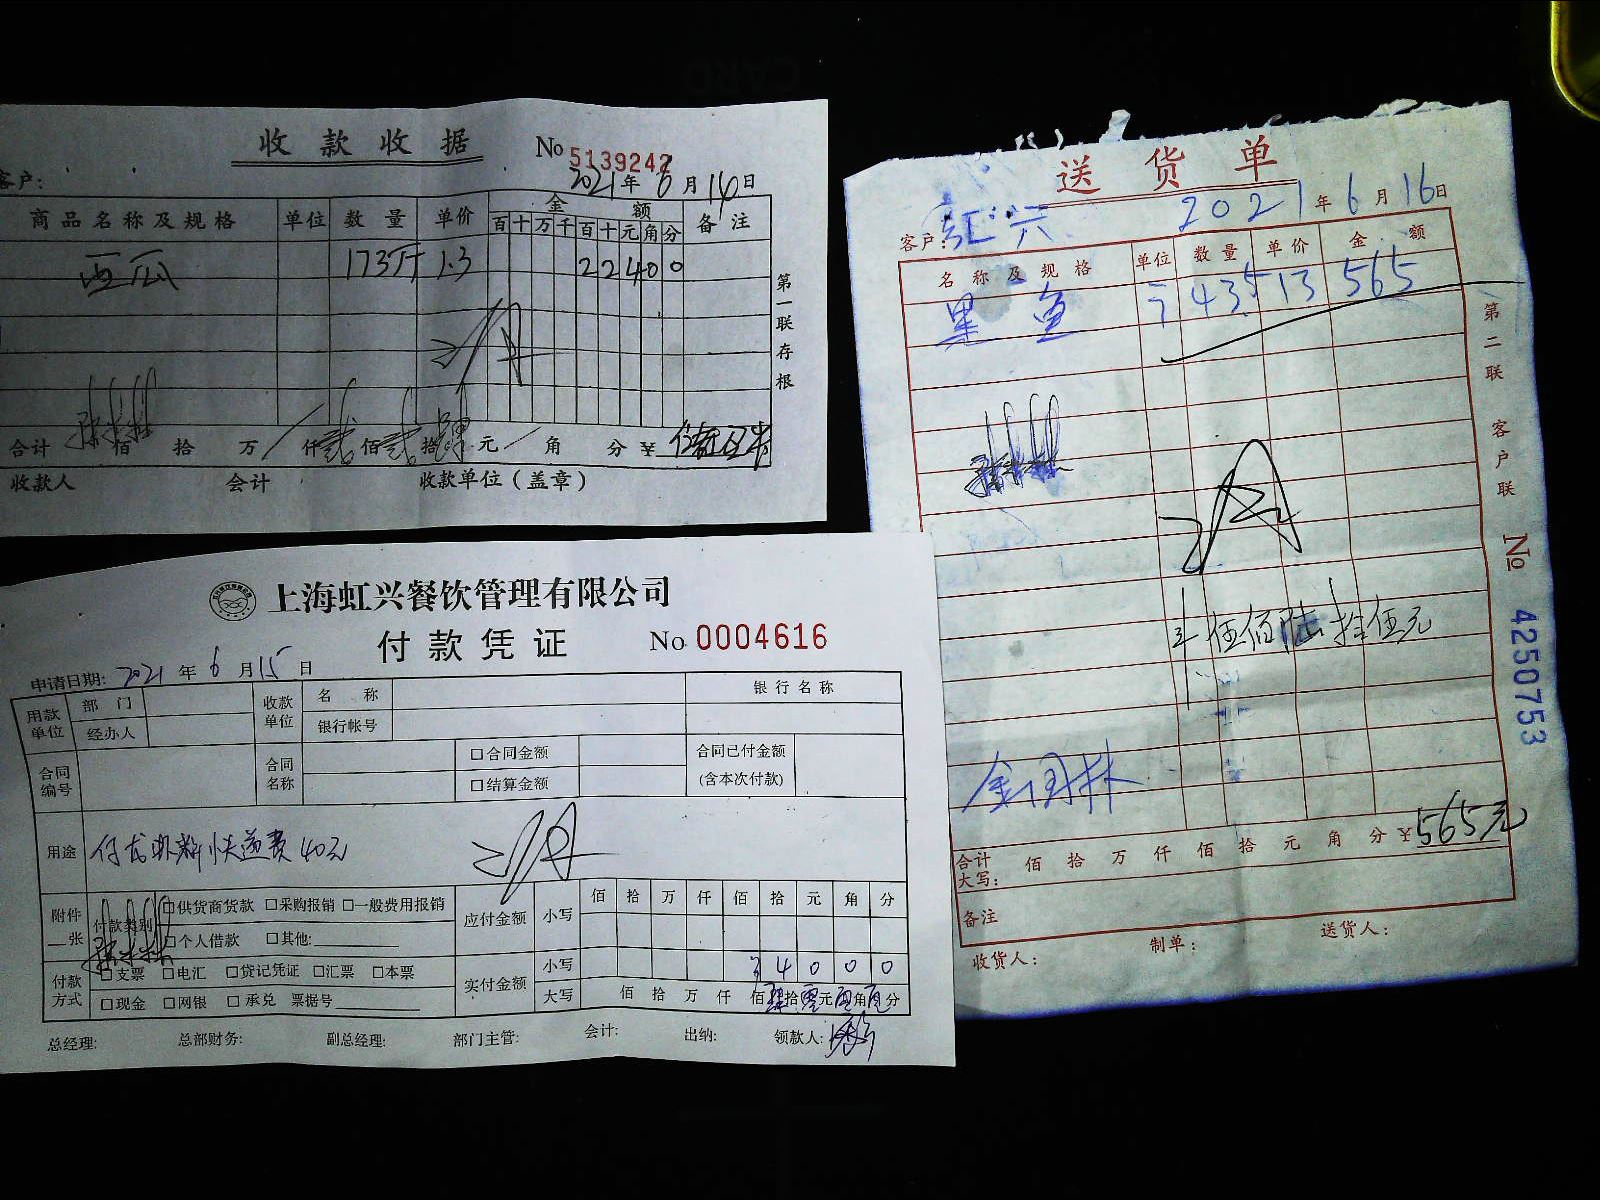 收款收据
No 5139242
客户:
2021年6月14日
商品名称及规格 单位 数量 单价 金额 备注
百十万千百十元角分
西瓜 173斤 1.3 22400
第一联存根
合计 佰 拾 万 仟贰佰贰拾肆元 角 分 ¥
收款人 会计 收款单位(盖章)
上海虹兴餐饮管理有限公司
付款凭证
No 0004616
申请日期: 2021年6月15日
用款单位 部门 收款单位 名称 银行名称
经办人 银行帐号
合同编号 合同名称 □合同金额 合同已付金额
□结算金额 (含本次付款)
用途 付龙虾料快递费40元
附件 张 付款类别 □供货商货款 □采购报销 □一般费用报销
□个人借款 □其他:
应付金额 小写 佰 拾 万 仟 佰 拾 元 角 分
付款方式 □支票 □电汇 □贷记凭证 □汇票 □本票
□现金 □网银 □承兑 票据号
实付金额 小写 4000
大写 佰 拾 万 仟 佰肆拾零元 角 分
总经理: 总部财务: 副总经理: 部门主管: 会计: 出纳: 领款人:
送货单
客户: 虹兴 2021年6月16日
名称及规格 单位 数量 单价 金额
黑鱼 43.5 13 565
第二联 客户联
No 4250753
伍佰陆拾伍元
合计大写: 佰 拾 万 仟 佰 拾 元 角 分 ¥565元
备注
收货人: 制单: 送货人: